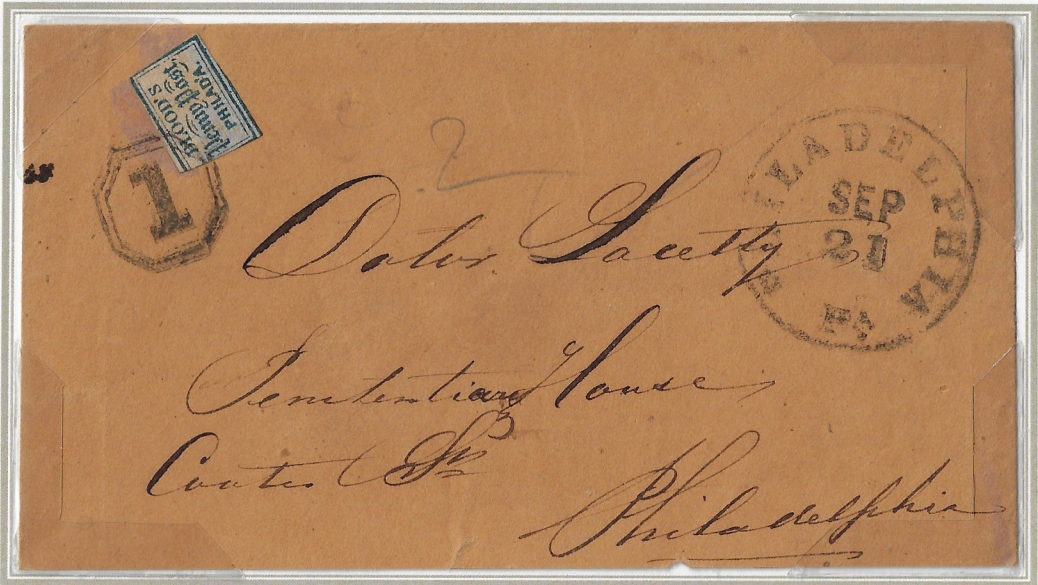 BLOOD'S
Penny Post.
PHILAD'A.
1
2
PHILADELPHIA
SEP
21
Pa
Doctor Lacetty
Penitentiary House
Coates St
Philadelphia